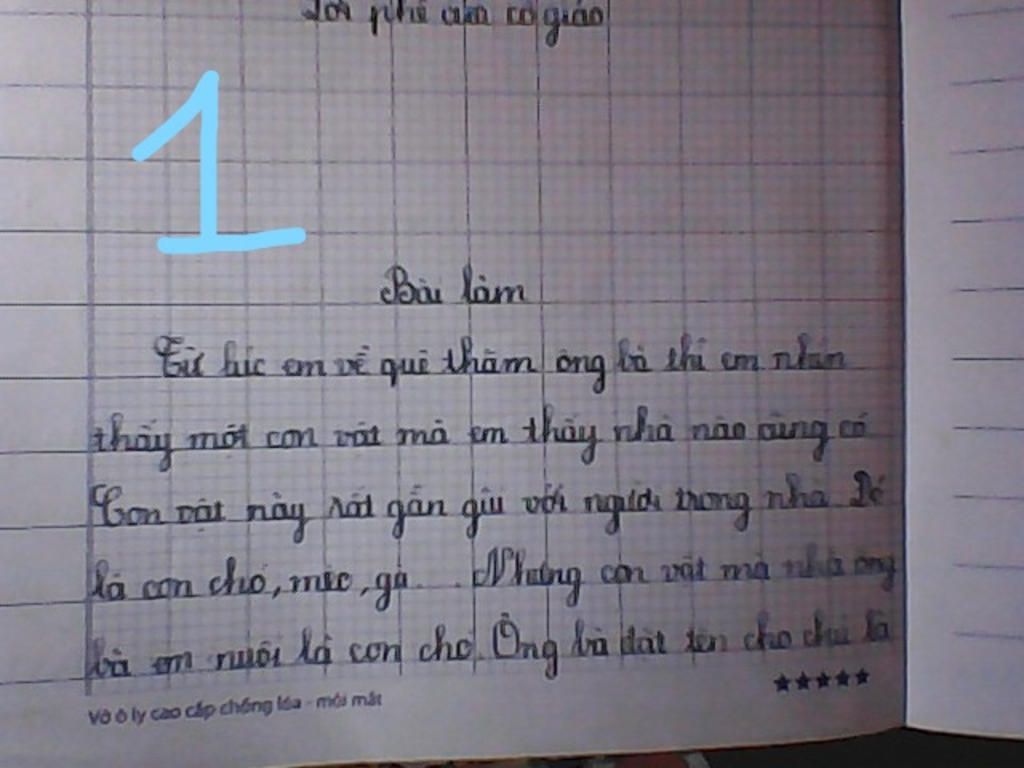 Lời phê của cô giáo
1
Bài làm
Từ lúc em về quê thăm ông bà thì em nhìn
thấy một con vật mà em thấy nhà nào cũng có
Con vật này rất gần giũ với người trong nhà Đó
là con chó, mèo, gà... Nhưng con vật mà nhà ông
bà em nuôi là con chó. Ông bà đặt tên cho chú là
Vở ô ly cao cấp chống lóa - mỏi mắt